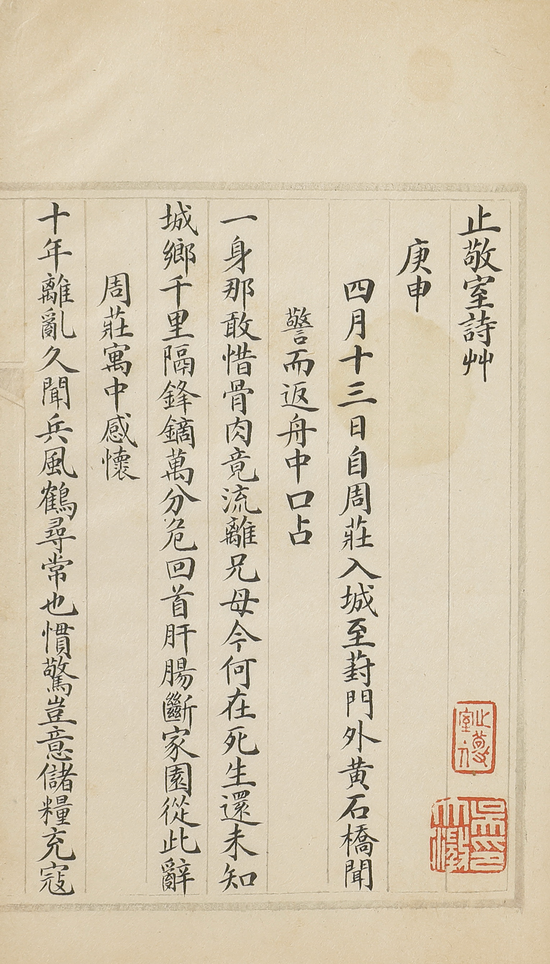 止敬室詩艸
庚申
四月十三日自周莊入城至葑門外黃石橋聞
警而返舟中口占
一身那敢惜骨肉竟流離兄母今何在死生還未知
城鄉千里隔鋒鏑萬分危回首肝腸斷家園從此辭
周莊寓中感懷
十年離亂久聞兵風鶴尋常也慣驚豈意儲糧充寇
吳印大澂